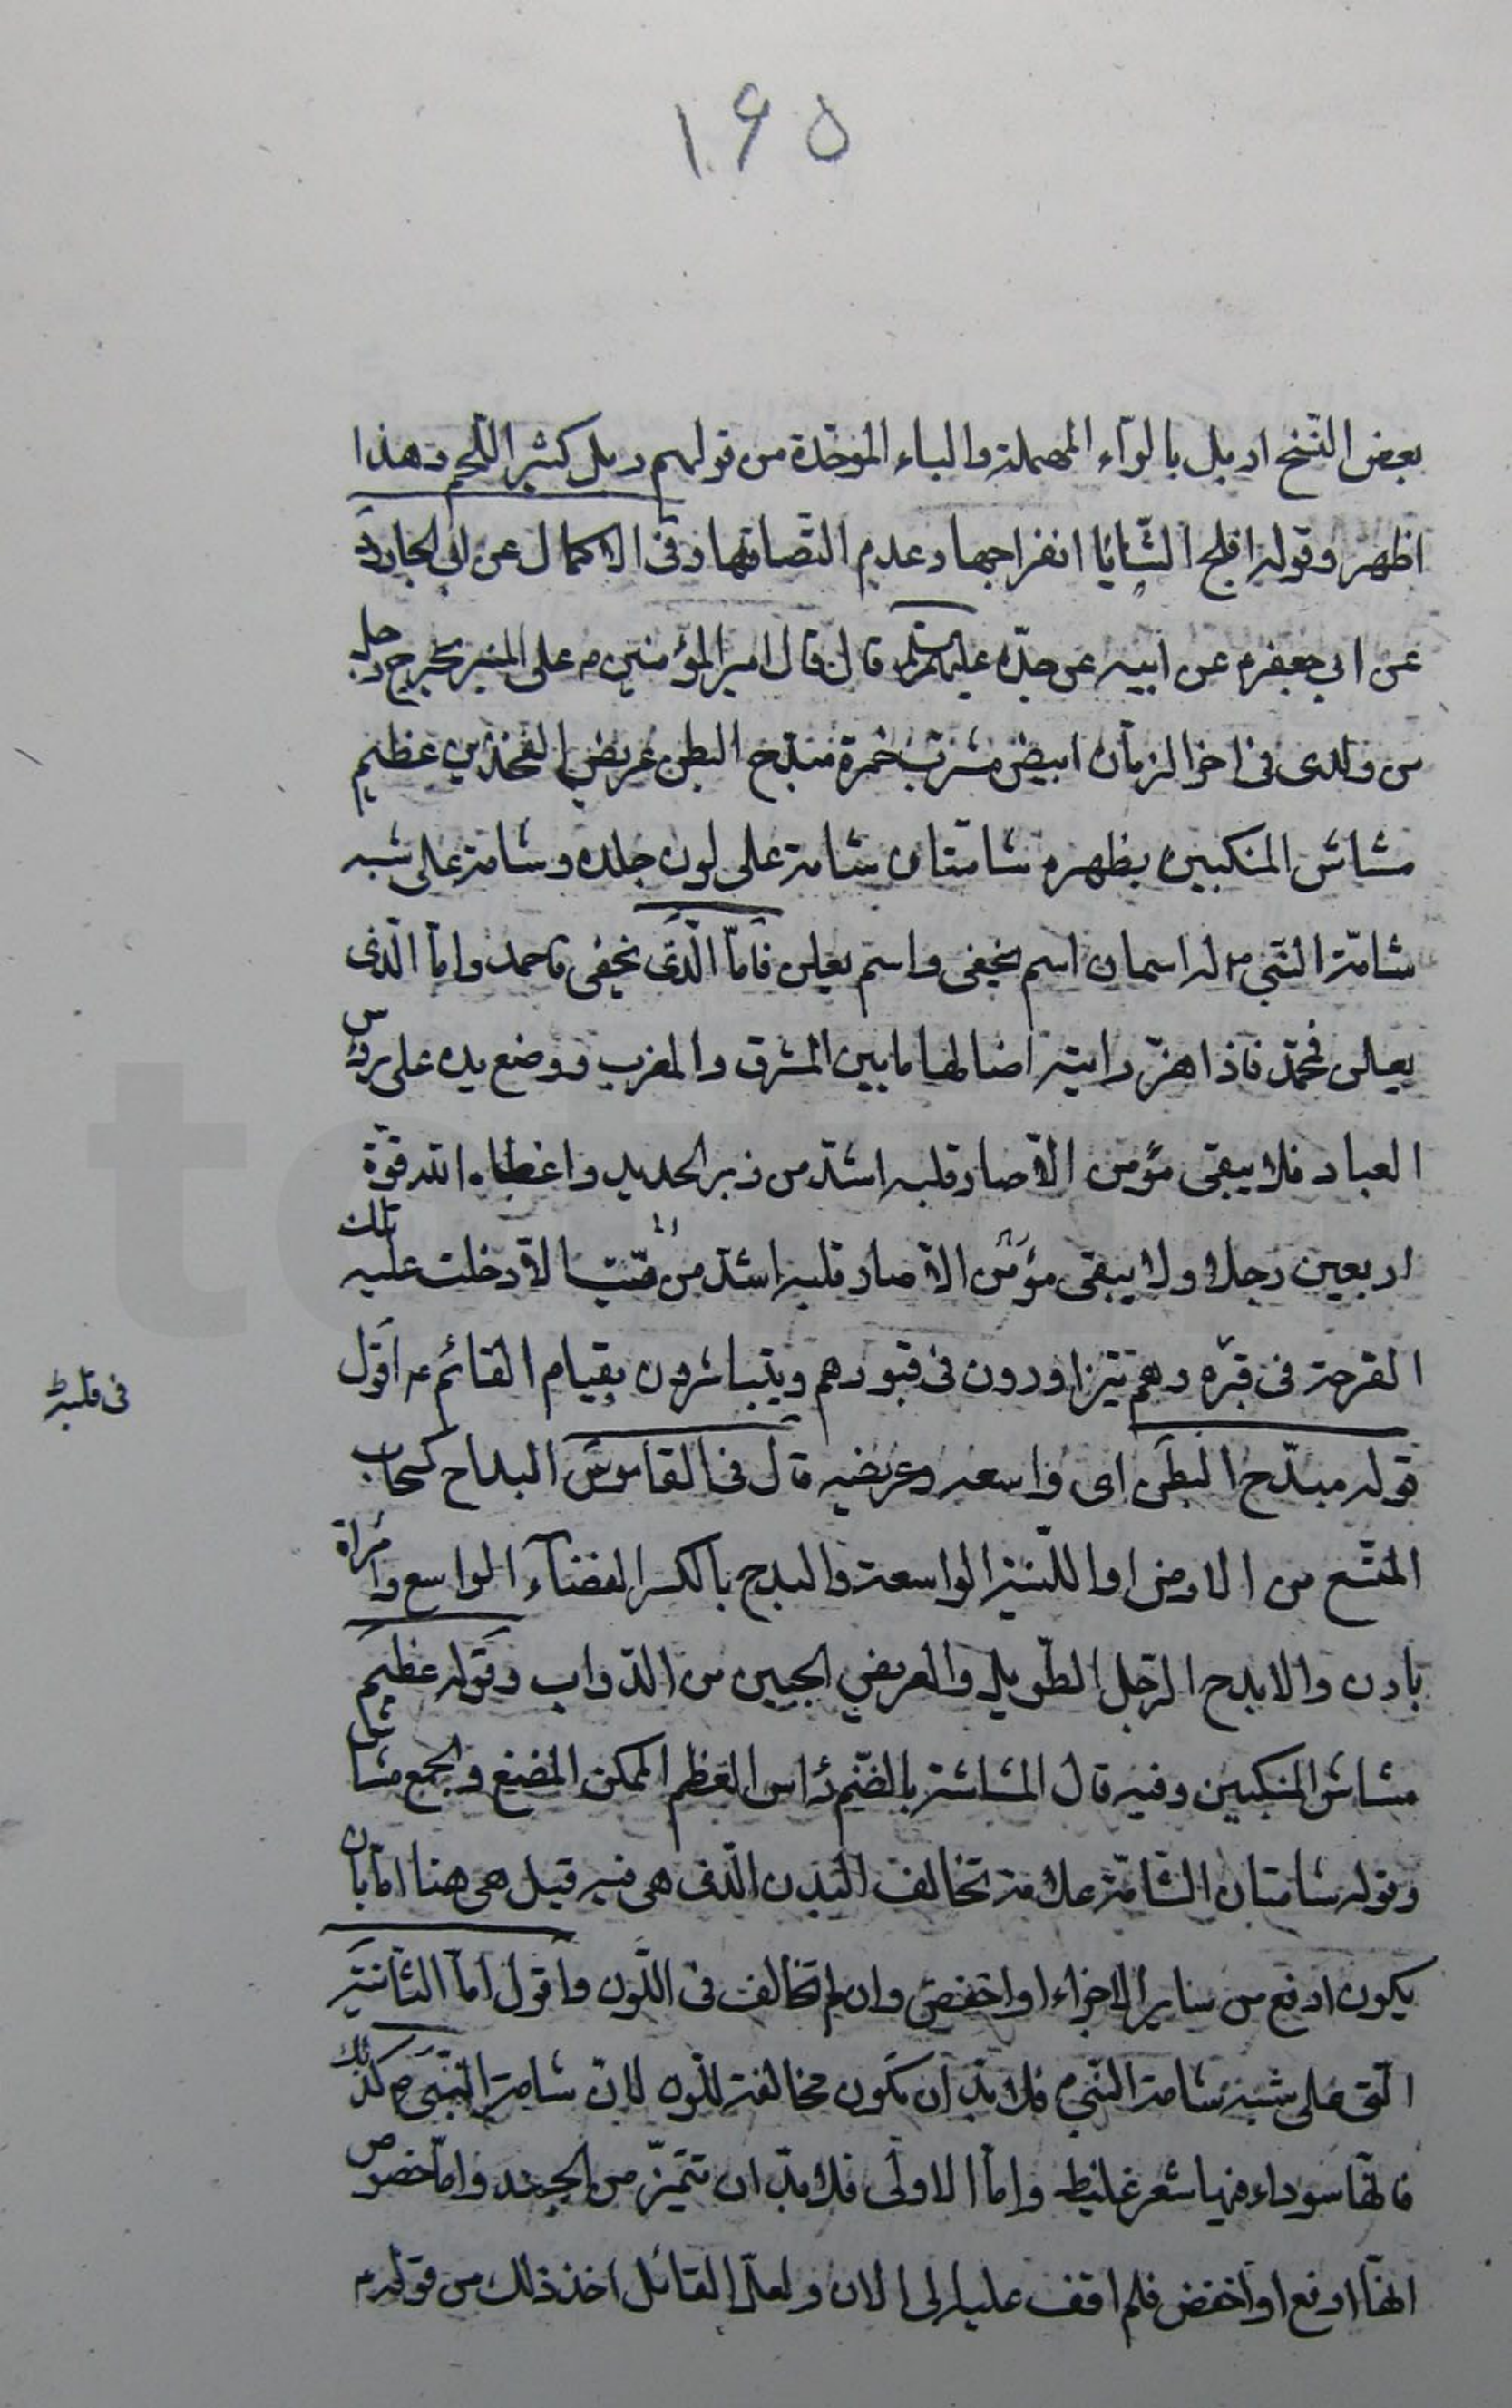 ۱۶۵
بعض النّسخ اربل بالرّاء المهملة والباء الموحّدة من قولهم ربل كثير اللّحم وهذا
اظهر وقوله افلج الثّنايا انفراجها وعدم التصاقها وفى الاكمال عن ابى الجارود
عن ابي جعفر م عن ابيه عن جدّه عليهم السلم قال قال امير المؤمنين م على المنبر يخرج رجل
من ولدى فى اخر الزمان ابيض مشرب حمرة مبتدح البطن عريض الفخذين عظيم
مشاش المنكبين بظهره شامتان شامة على لون جلده وشامة على شبه
شامة النّبي م له اسمان اسم يخفى واسم يعلن فامّا الّذى يخفى فاحمد وامّا الّذى
يعلن فمحمّد فاذا هزّ رايته اضا لها ما بين المشرق والمغرب ووضع يده على رؤس
العباد فلا يبقى مؤمن الّا صار قلبه اشدّ من زبر الحديد واعطاه الله قوّة
اربعين رجلا ولا يبقى مؤمن الّا صار قلبه اشدّ من ميّت الّا دخلت عليه تلك
الفرحة فى قبره وهم يتزاورون فى قبورهم ويتباشرون بقيام القائم م اقول
فى قلبه
قوله مبدّح البطن اى واسعه وعريضه قال فى القاموس البداح كسحاب
المتّسع من الارض او اللّيّنة الواسعة والبدح بالكسر الفضاء الواسع وامراة
بادن والابدح الرّجل الطّويل والعريض الجبين من الدّواب وقوله عظيم
مشاش المنكبين وفيه قال المشاشة بالضّم رأس العظم الممكن المضغ والجمع مشاش
وقوله شامتان الشّامة علامة تخالف البدن الّذى هى فيه قيل هى هنا امّا بان
يكون ارفع من ساير الاجزاء او اخفض وان لم تخالف فى اللّون واقول امّا الثّانية
الّتى على شبه شامة النّبي م فلا بدّ ان تكون مخالفة للّون لانّ شامة النّبى ص كذلك
فانّها سوداء فيها شعر غليظ وامّا الاولى فلا بدّ ان تتميّز من الجسد وامّا خصوص
انّها ارفع او اخفض فلم اقف عليه الى الان ولعلّ القائل اخذ ذلك من قوله م